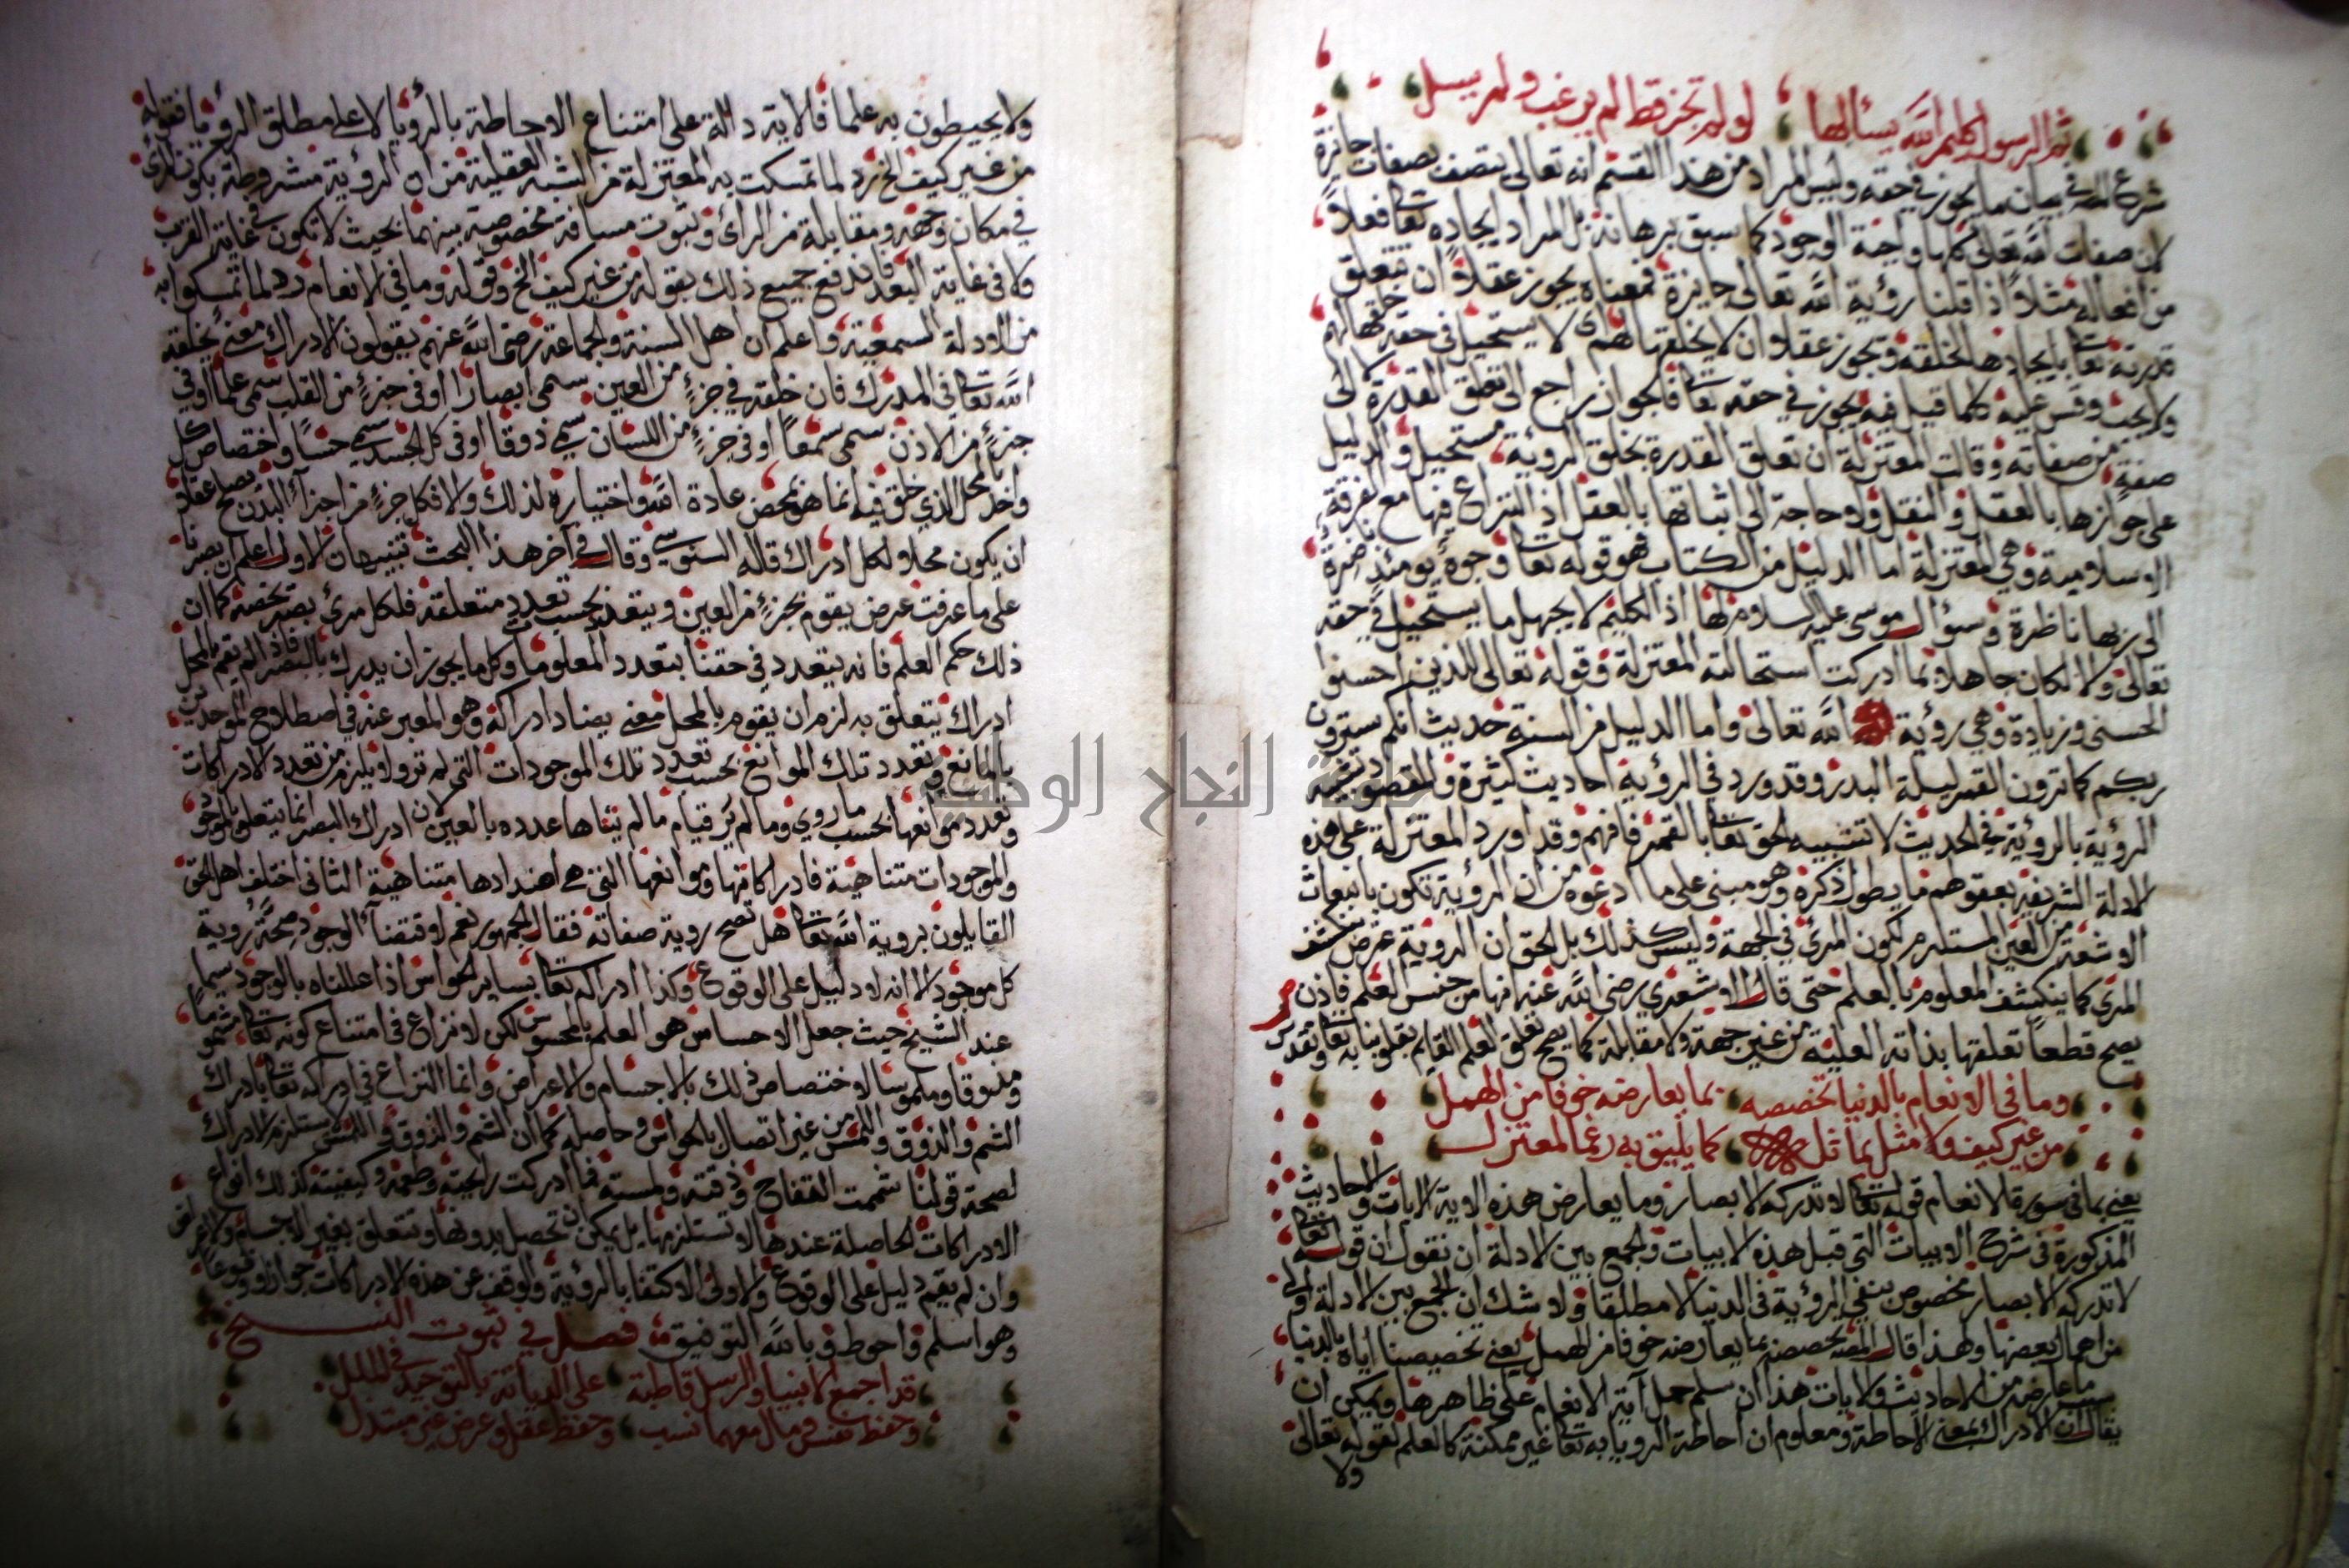 ثم الرسول كليم الله يسألها لو لم تجز قط لم يرغب ولم يسل
شرع المص في بيان ما يجوز في حقه وليس المراد من هذا القسم انه تعالى يتصف بصفات جائزة
لان صفات الله تعالى كلها واجبة الوجود كما سبق برهانه بل المراد ايجاده تعا فعلا
من افعاله مثلا اذا قلنا رؤية الله تعالى جايزة فمعناه يجوز عقلا ان تتعلق
قدرته تعا بايجادها لخلقه ويجوز عقلا وان لا يخلقها لهم اي لا يستحيل في حقه خلقها لهم
ولا يجب وقس عليه كلما قيل فيه يجوز في حقه تعا فالجواز راجع الى تعلق القدرة لا الى
صفة من صفاته وقالت المعتزلة ان تعلق القدرة بخلق الروية مستحيل والدليل
على جوازها بالعقل والنقل ولا حاجة الى اثباتها بالعقل اذ النزاع فيها مع الفرقة
الاسلامية وهي المعتزلة اما الدليل من الكتاب فهو قوله تعا وجوه يومئذ ناضرة
الى ربها ناظرة وسؤال موسى عليه السلام لها اذ الكليم لا يجهل ما يستحيل في حقه
تعالى والا لكان جاهلا بما ادركت استحالته المعتزلة وقوله تعالى للذين احسنوا
الحسنى وزيادة وهي رؤية الله تعالى واما الدليل من السنة حديث انكم سترون
ربكم كما ترون القمر ليلة البدر وقد ورد في الرؤية احاديث كثيرة والمقصود تشبيه
الرؤية بالرؤية في الحديث لا تشبيه الحق تعا بالقمر فافهم وقد اورد المعتزلة على هذه
الادلة الشريفة بعقولهم ما يطول ذكره وهو مبني على ما ادعوه من ان الرؤية تكون بانبعاث
الاشعة من العين المستلزم لكون المرئ في الجهة وليس كذلك بل الحق ان الروية عرض ينكشف
المرئ كما ينكشف المعلوم بالعلم حتى قال الاشعري رضي الله عنه انها من جنس العلم فاذن
يصح قطعا تعلقها بذاته العلية من غير جهة ولا مقابلة كما يصح تعلق العلم القايم بقلوبنا به تعا وتقدس
وما في الانعام بالدنيا تخصصه بما يعارضه خوفا من الهمل
من غير كيف ولا مثل يماثل كما يليق به رغما لمعتزل
يعني بما في سورة الانعام قوله تعا لا تدركه الابصار وما يعارض هذه الاية الايات والاحاديث
المذكورة في شرح الابيات التي قبل هذه الابيات والجمع بين الادلة ان نقول ان قوله تعا
لا تدركه الابصار مخصوص بنفي الرؤية في الدنيا لا مطلقا ولا شك ان الجمع بين الادلة اولى
من اهمال بعضها ولهذا قال المص تخصصه بما يعارضه خوفا من الهمل يعني تخصيصنا اياه بالدنيا
بسبب ما عارضه من الاحاديث والايات هذا ان سلم حمل آية الانعام على ظاهرها ويمكن ان
يقال ان الادراك بمعنى الاحاطة ومعلوم ان احاطة الرويا به تعا غير ممكنة كالعلم لقوله تعالى
ولا
ولا يحيطون به علما فالاية دالة على امتناع الاحاطة بالرؤيا لا على مطلق الرؤيا فقوله
من غير كيف الخ رد لما تمسكت به المعتزلة من الشبه العقلية من ان الرؤية مشروطة بكون المرئ
في مكان وجهة ومقابلة من الرائ وثبوت مسافة مخصوصة بينهما بحيث لا تكون في غاية القرب
ولا في غاية البعد فاندفع جميع ذلك بقوله من غير كيف الخ وقوله وما في الانعام رد لما تمسكوا به
من الادلة السمعية واعلم ان اهل السنة والجماعة رضي الله عنهم يقولون الادراك معنى يخلقه
الله تعا في المدرك فان خلقه في جزء من العين سمي ابصارا او في جزء من القلب سمي علما او في
جزء من الاذن سمي سمعا او في جزء من اللسان سمي ذوقا او في كل الجسد سمي حسا واختصاص كل
واحد بالمحل الذي خلق فيه انما هو بمحض عادة الله واختياره لذلك والا فكل جزء من اجزاء البدن يصح عقلا
ان يكون محلا لكل ادراك قاله السنوسي وقال في آخر هذا البحث تنبيهان الاول اعلم ان بصرنا
على ما عرفت عرض يقوم بجزء من العين ويتعدد بحسب تعدد متعلقه فلكل مرئ بصر يخصه كما ان
ذلك حكم العلم فانه يتعدد في حقنا بتعدد المعلومات وكل ما يجوز ان يدرك بالبصر فاذا لم يقم بالمحل
ادراك يتعلق به لزم ان يقوم بالمحل معنى يضاد ادراكه وهو المعبر عنه في اصطلاح الموحدين
بالمانع وتعدد تلك الموانع بحسب تعدد تلك الموجودات التي لم تر ولا يلزم من تعدد الادراكات
وتعدد موانعها بحسب ما روي وما لم ير قيام ما لم يتناها عدده بالعين لان ادراك البصر انما يتعلق بالموجود
والموجودات متناهية فادراكاتها وموانعها التي هي اضدادها متناهية الثاني اختلف اهل الحق
القايلون بروية الله تعا هل تصح روية صفاته فقال الجمهور نعم لاقتضاء الوجود صحة روية
كل موجود الا انه لا دليل على الوقوع وكذا ادراكه تعا بساير الحواس اذا عللناه بالوجود سيما
عند الشيخ حيث جعل الاحساس هو العلم بالمحسوس لكن لا نزاع في امتناع كونه تعا مشموما
ومذوقا وملموسا لاختصاص ذلك بالاجسام والاعراض وانما النزاع في ادراكه تعا بادراك
الشم والذوق واللمس من غير اتصال بالحواس وحاصله كما ان الشم والذوق واللمس لا يستلزم الادراك
لصحة قولنا شممت التفاح وذقته ولمسته فما ادركت رايحته وطعمه وكيفيته كذلك انواع
الادراكات الحاصلة عندها لا تستلزمها بل يمكن ان تحصل بدونها وتتعلق بغير الاجسام والاعراض
وان لم يقم دليل على الوقوع والاولى الاكتفا بالرؤية والوقف عن هذه الادراكات جوازا ووقوعا
وهو اسلم واحوط وبالله التوفيق فصل في ثبوت النسخ
قد اجمع الانبيا والرسل قاطبة على الديانة بالتوحيد في الملل
وحفظ نفس ومال معهما نسب وحفظ عقل وعرض غير مبتذل
جامعة النجاح الوطنية